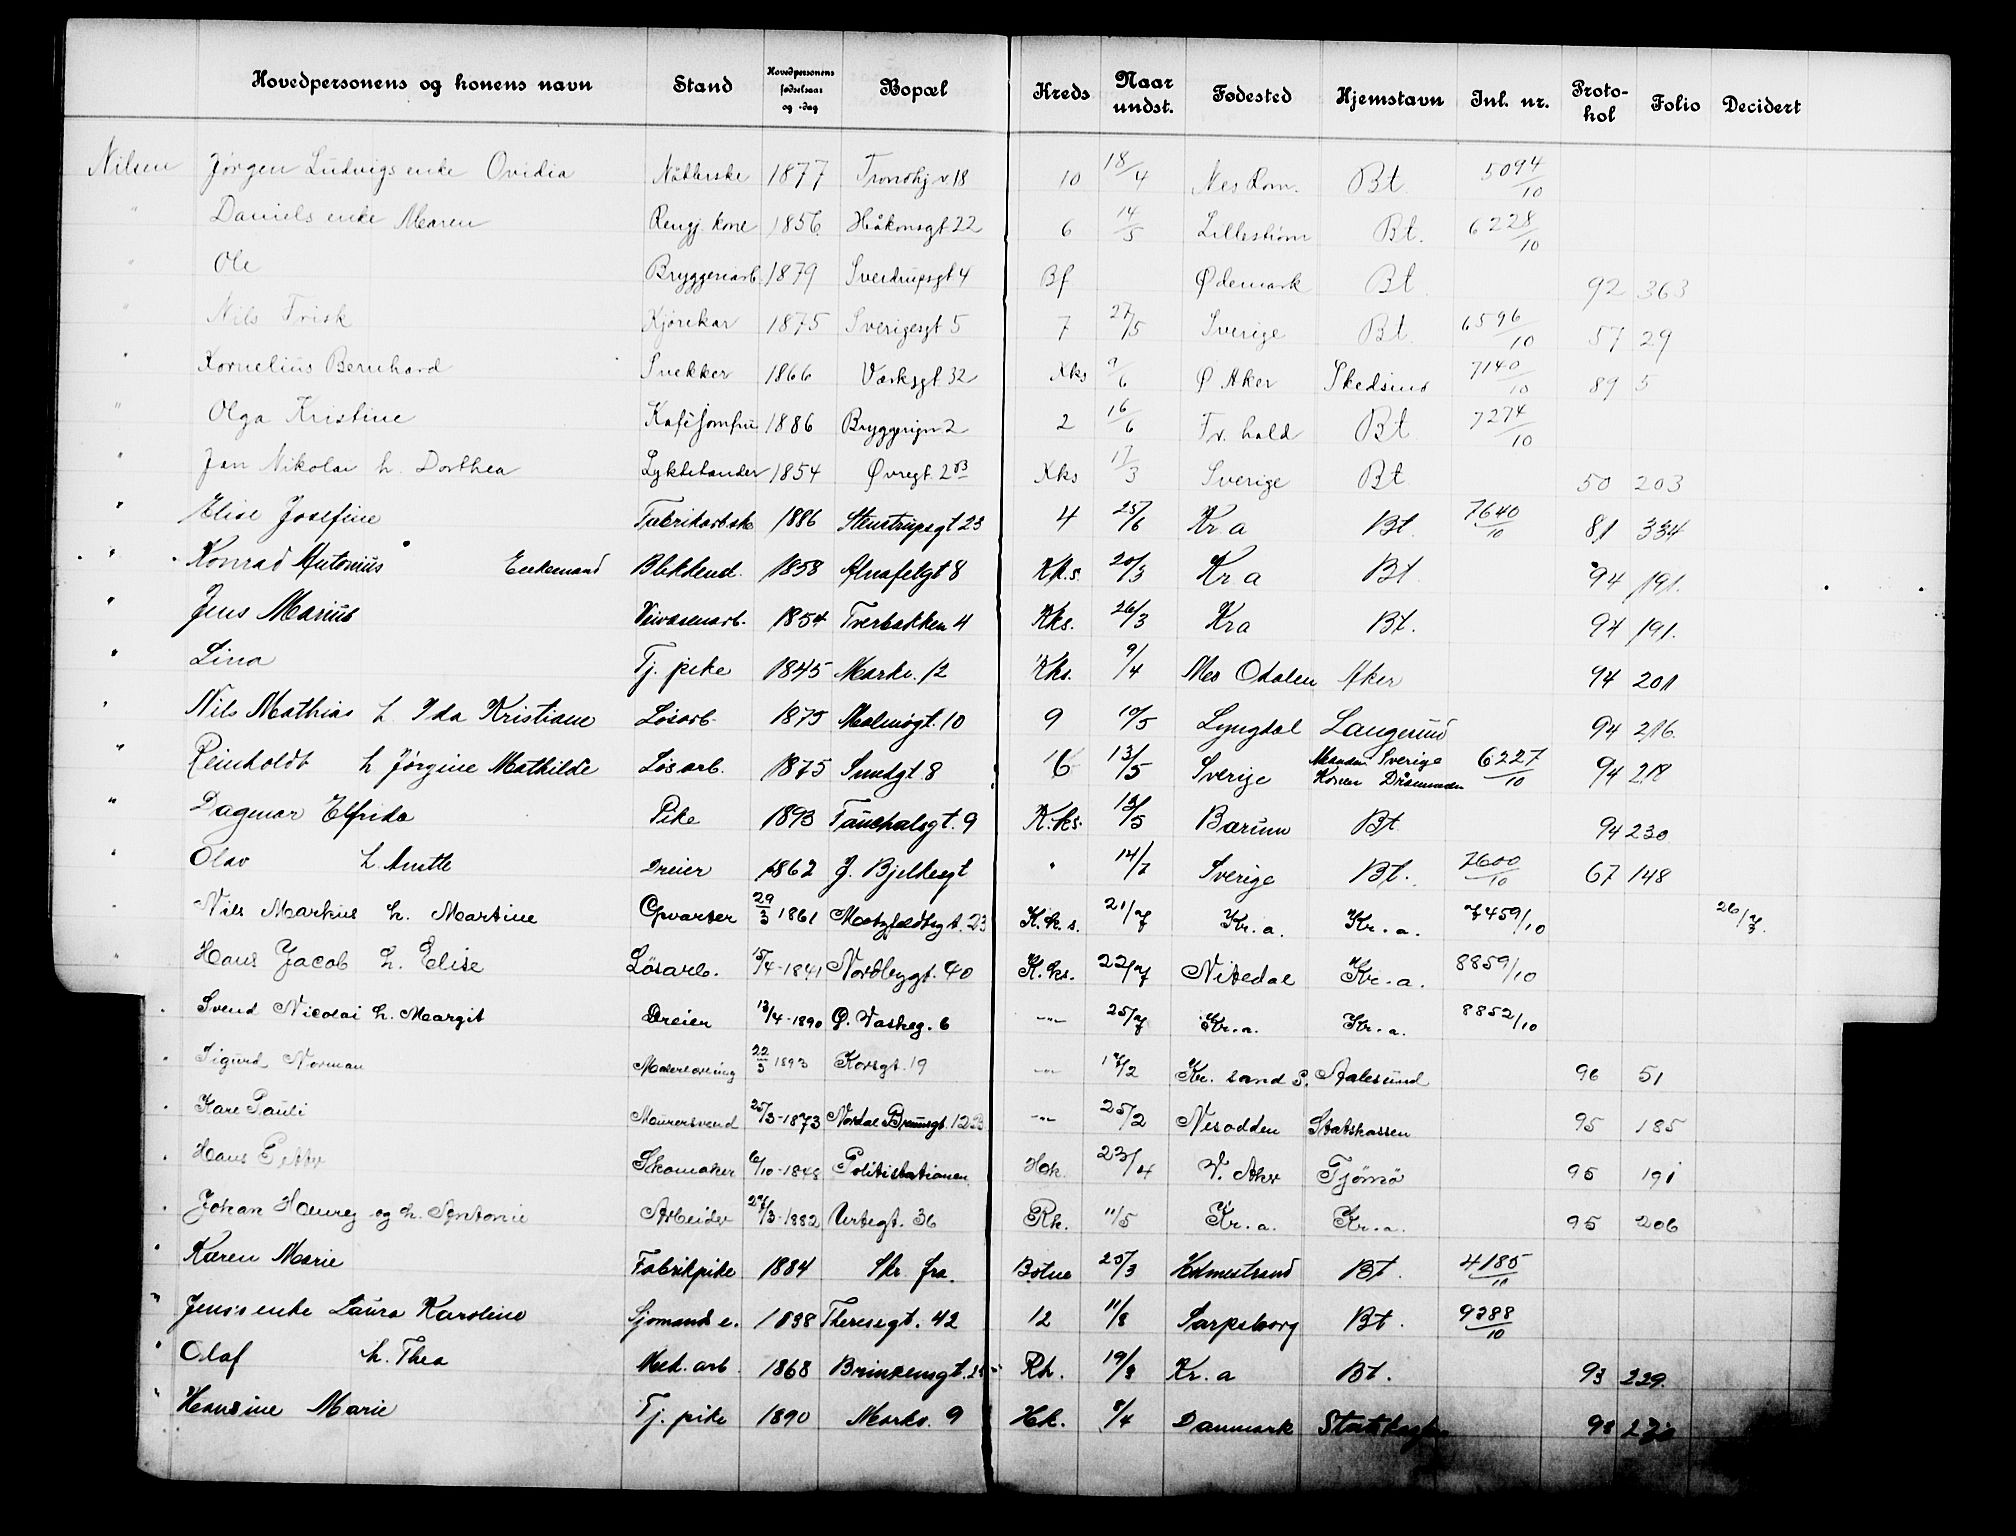 Hovedpersonens og konens navn | Stand | Hovedpersonens fødselsaar og -dag | Bopæl | Kreds | Naar undst. | Fødested | Hjemstavn | Inl. nr. | Protokol | Folio | Decidert
Nilsen Jørgen Ludvigs enke Ovidia | | 1877 | Trondhj.v. 18 | 10 | 18/4 | Nes Rom. | Bt. | 5094/10
" Daniels enke Maren | Rengj. kone | 1856 | Håkonsgt 22 | 6 | 14/5 | Lillestrøm | Bt. | 6228/10
" Ole | Bryggeriarb. | 1879 | Sverdrupsgt 4 | Bf | | Ødemark | Bt | | 92 | 363
" Nils Frisk | Kjørekar | 1875 | Sverigesgt 5 | 7 | 27/5 | Sverige | Bt. | 6596/10 | 57 | 29
" Kornelius Bernhard | Snekker | 1866 | Værksgt 32 | Kks | 9/6 | Ø Aker | Skedsmo | 7140/10 | 89 | 5
" Olga Kristine | Kaféjomfru | 1886 | | 2 | 16/6 | Fr. hald | Bt. | 7274/10
" Jan Nikolai h. Dorthea | Lyktetender | 1854 | Øvregt. 2B | Kks | 17/3 | Sverige | Bt | | 50 | 203
" Elise Josefine | Fabrikarbske | 1886 | Stenstrupsgt 23 | 4 | 25/6 | Kr a | Bt. | 7640/10 | 81 | 334
" Konrad Antonius Enkemand | | 1858 | Alnafetgt 8 | Kks. | 20/3 | Kr a | Bt. | | 94 | 191.
" Jens Marius | Veivæsenarb. | 1854 | Tverbakken 4 | Kks. | 26/3 | Kra | Bt. | | 94 | 191.
" Lina | Tj. pike | 1845 | Markv. 12 | Kks. | 9/4 | Nes Odalen | Aker | | 94 | 201
" Nils Mathias h. Ida Kristiane | Løsarb. | 1875 | Malmøgt. 10 | 9 | 10/5 | Lyngdal | Langesund | | 94 | 216.
" Reinholdt h Jørgine Mathilde | Løsarb. | 1875 | Sundgt 8 | 6 | 13/5 | Sverige | Manden Sverige Konen Drammen | 6227/10 | 94 | 218
" Dagmar Elfrida | Pike | 1893 | Tøuchalsgt. 9 | K.ks. | 13/5 | Bærum | Bt. | | 94 | 230
" Olav h. Anette | Dreier | 1862 | J. Bjeldesgt | " | 14/7 | Sverige | Bt. | 7600/10 | 67 | 148
" Nils Markus h. Martine | Opvarter | 29/3 1861 | Motzfeldtsgt. 23 | K.k.s. | 21/7 | Kr. a. | Kr. a. | 7459/10 | | | 26/7.
" Hans Jacob h. Elise | Løsarb. | 15/4-1841 | Nordbygt. 40 | K.ks. | 22/7 | Nitedal | Kr. a. | 8859/10
" Svend Nicolai h. Margit | Dreier | 13/4-1890 | Ø. Vaskeg. 6 | -"- | 25/7 | Kr. a. | Kr. a. | 8852/10
" Sigurd Norman | Malerlærling | 22/3 1893 | Korsgt. 19 | -"- | 17/2 | Kr. sand S. | Aalesund | | 96 | 51
" Kare Pauli | Murersvend | 25/3-1873 | Nordal Brunsgt. 12B | -"- | 25/2 | Nesodden | Statskassen | | 95 | 185
" Hans Petter | Skomaker | 6/10-1848 | Politistationen | Hok. | 23/4 | V. Aker | Tjømø | | 95 | 191
" Johan Henrey og h. Antonie | Arbeider | 27/3-1882 | Urtegt. 36 | Rk. | 11/5 | Kr. a. | Kr. a. | | 95 | 206
" Karen Marie | Fabrikpike | 1884 | Skr. fra. | Botne | 25/3 | Holmestrand | Bt. | 4185/11
" Jens's enke Laura Karoline | Sjømands e. | 1838 | Theresegt. 42 | 12 | 11/8 | Sarpsborg | Bt. | 9288/10
" Olaf h. Thea | Mek. arb. | 1868 | Brinkensgt. | Rk. | 19/3 | Kr. a | Bt. | | 93 | 229.
" Hansine Marie | Tj. pike | 1890 | Markv. 9 | Hk. | 8/4 | Danmark | | | 93